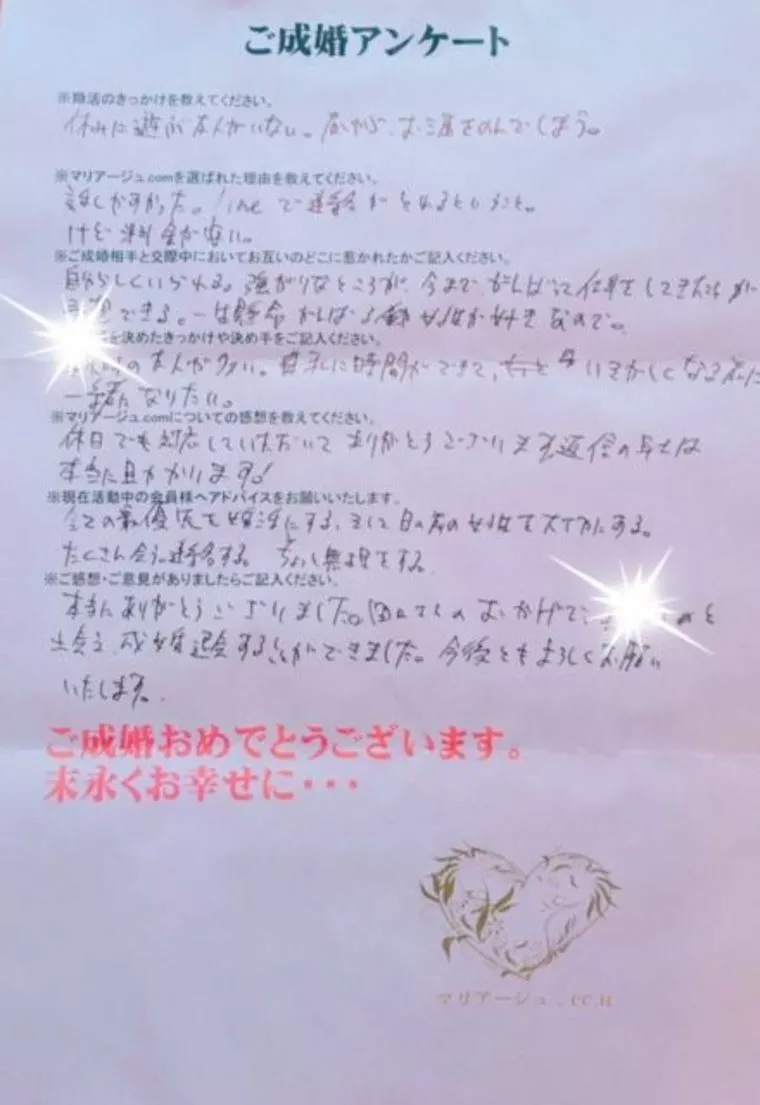 ご成婚アンケート
※婚活のきっかけを教えてください。
休みに遊ぶ友人がいない。昼から、お酒をのんでしまう。
※マリアージュ.comを選ばれた理由を教えてください。
話しかすかった。lineで連絡がとれるということ。
料金が安い。
※ご成婚相手と交際中においてお互いのどこに惹かれたかご記入ください。
自分らしくいられる。強がりなところが、今までがんばって仕事をしてきた
できる。一生懸命がんばる女性が好きなので。
を決めたきっかけや決め手をご記入ください。
の友人が多い。時間ができて、もっと いそがしくなる前に
一緒になりたい。
※マリアージュ.comについての感想を教えてください。
休日でも対応していただいてありがとうございます返信の早さは
本当に助かります!
※現在活動中の会員様へアドバイスをお願いいたします。
全ての最優先を婚活にする、そして目の前の女性を大切にする。
たくさん会う、連絡する ちょっと無理をする
※ご感想・ご意見がありましたらご記入ください。
本当にありがとうございました。のおかげで、
出会え、成婚退会することができました。今後ともよろしくお願い
いたします。
ご成婚おめでとうございます。
末永くお幸せに・・・
マリアージュ.com